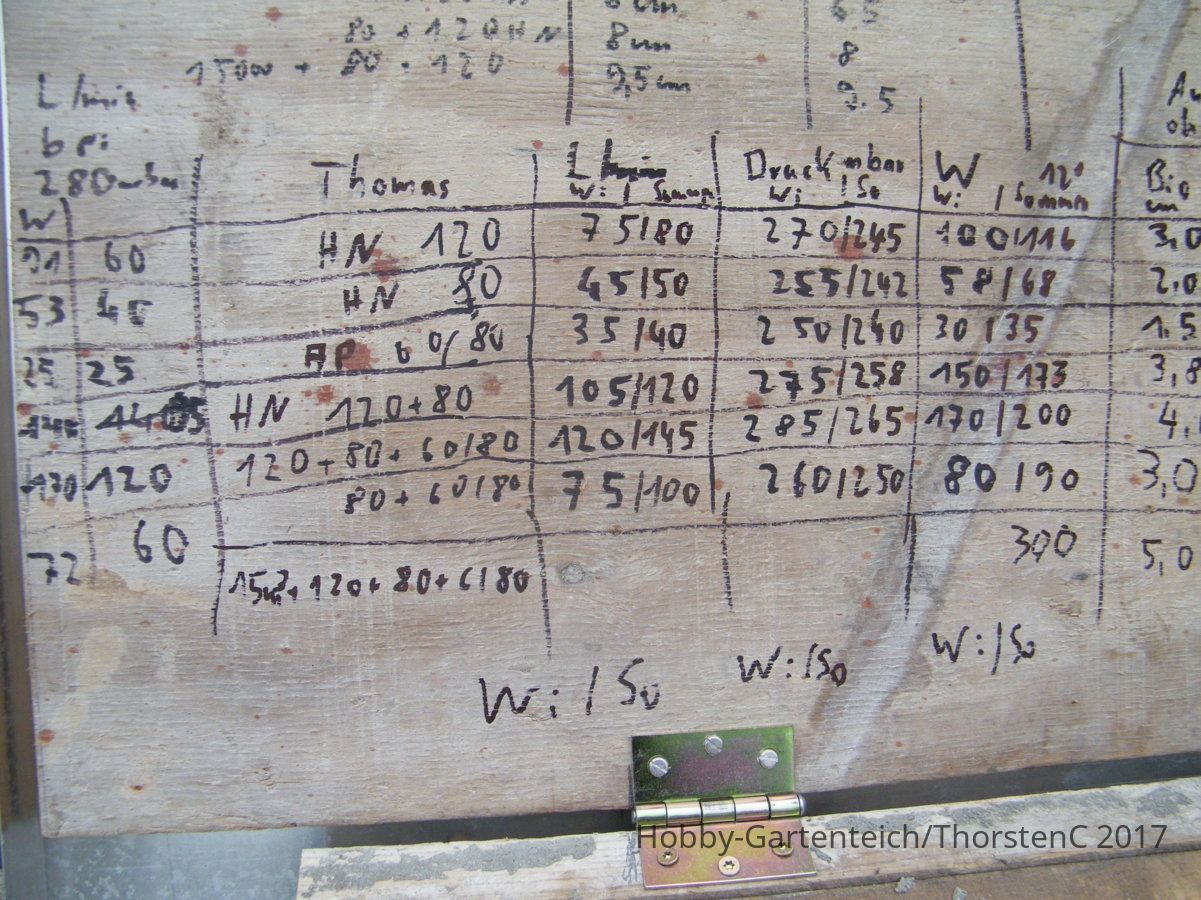 6 cm 6 5
80 + 120 HN 8 cm 8
150W + 80 + 120 9,5cm 9.5
L/min
bei
280mbar
W Thomas L/min Druck mbar W 12° Bio
Wi / Somm Wi / So Wi / Somm cm
91 60 HN 120 75/80 270/245 100/116 3,0
53 40 HN 80 45/50 255/242 58/68 2.0
25 25 AP 60/80 35/40 250/240 30/35 1.5
HN 120+80 105/120 275/258 150/173 3,8
170 120 120+80+60/80 120/145 285/265 170/200 4,
72 60 80+60/80 75/100 260/250 80/90 3,0
120+80+6/80 300 5,0
Wi/So Wi/So Wi/So
Hobby-Gartenteich/ThorstenC 2017